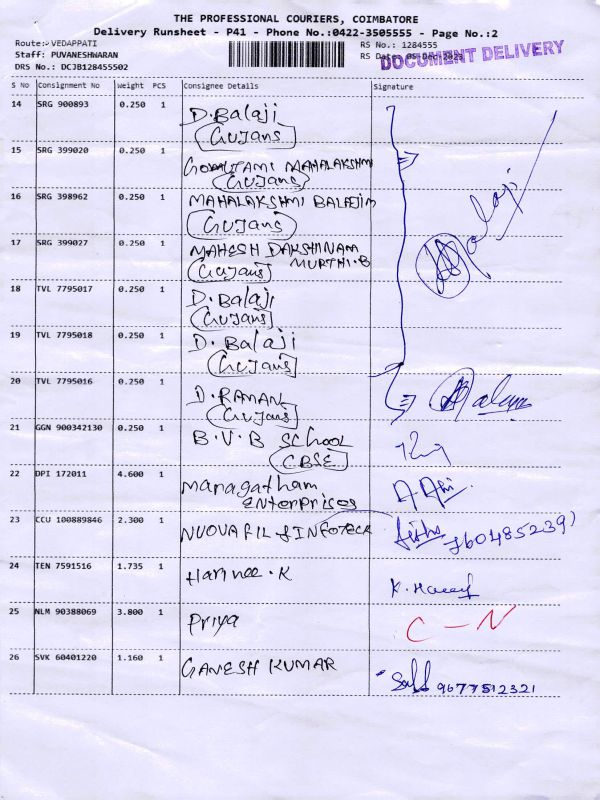 THE PROFESSIONAL COURIERS, COIMBATORE
Delivery Runsheet - P41 - Phone No.:0422-3505555 - Page No.:2
Route: VEDAPPATI
RS No.: 1284555
Staff: PUVANESHWARAN
RS Date: 05-Dec-2023
DOCUMENT DELIVERY
DRS No.: DCJB128455502
S No Consignment No Weight PCS Consignee Details Signature
14 SRG 900893 0.250 1 D.Balaji
Gujans
15 SRG 399020 0.250 1 MAHALAKSHMI
Gujans
16 SRG 398962 0.250 1 MAHALAKSHMI BALAJI
Gujans
Balaji
17 SRG 399027 0.250 1 MAHESH DAKSHINAM
MURTHI.B
Gujans
18 TVL 7795017 0.250 1 D.Balaji
Gujans
19 TVL 7795018 0.250 1 D.Balaji
Gujans
20 TVL 7795016 0.250 1 D.RAMAN
Gujans
21 GGN 900342130 0.250 1 B.V.B SCHOOL
CBSE
22 DPI 172011 4.600 1 Managatham
Enterprises
23 CCU 100889846 2.300 1 NUOVA FIL & INFOTECK 7604852391
24 TEN 7591516 1.735 1 Harinee.K K.
25 NLM 90388069 3.800 1 Priya C-N
26 SVK 60401220 1.160 1 GANESH KUMAR 9677512321